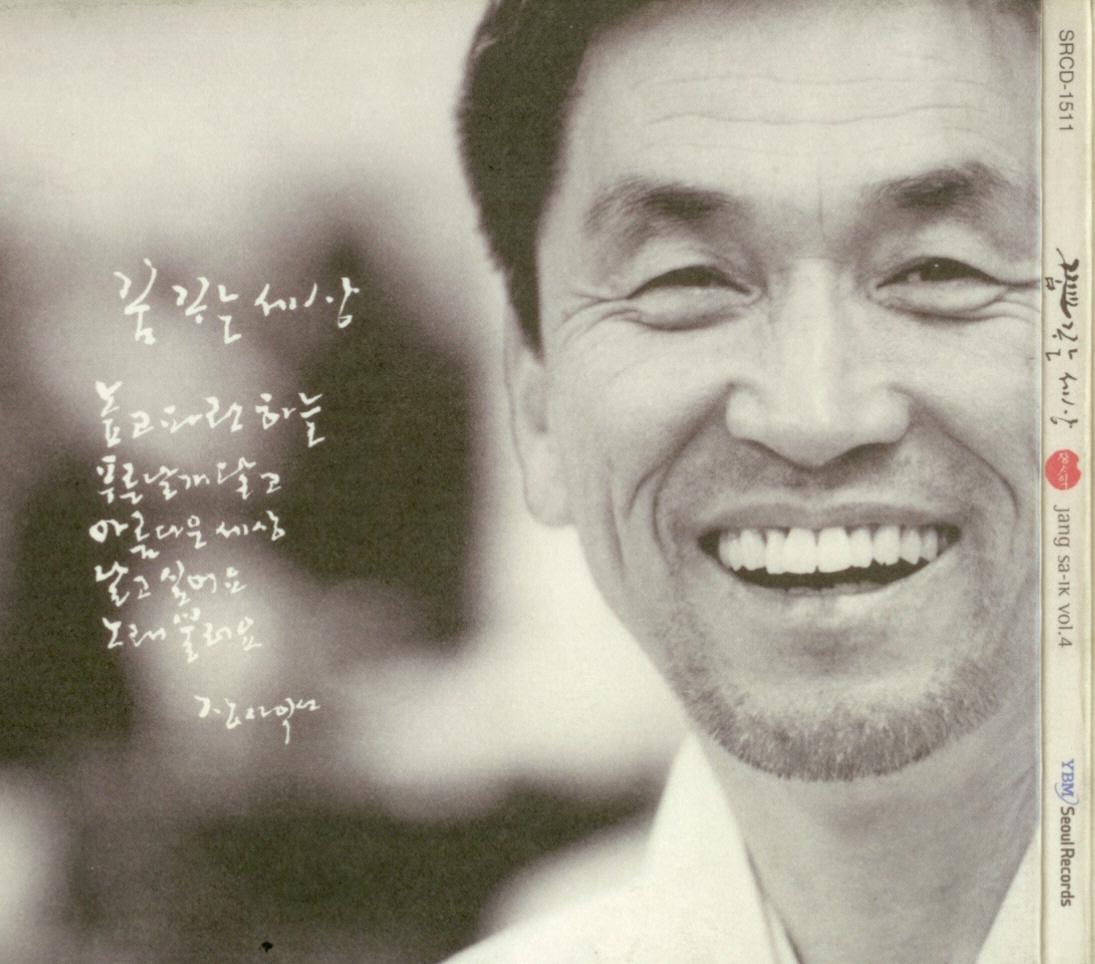 꿈 같은 세상
높고 파란 하늘
푸른 날개 달고
아름다운 세상
날고 싶어요
노래 불러요
장사익
SRCD-1511
꿈꾸는 세상
장사익
jang sa-ik vol.4
YBM Seoul Records